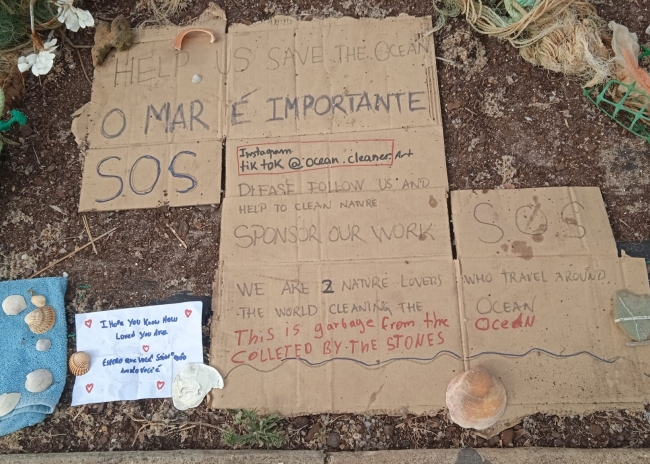 HELP US SAVE THE OCEAN
O MAR É IMPORTANTE
SOS
Instagram
tik tok @ocean.cleaner.Art
PLEASE FOLLOW US AND
HELP TO CLEAN NATURE
SPONSOR OUR WORK
SOS
WE ARE 2 NATURE LOVERS WHO TRAVEL AROUND
THE WORLD CLEANING THE OCEAN
This is garbage from the OCEAN
COLLETED BY THE STONES
I Hope You Know How
Loved You Are